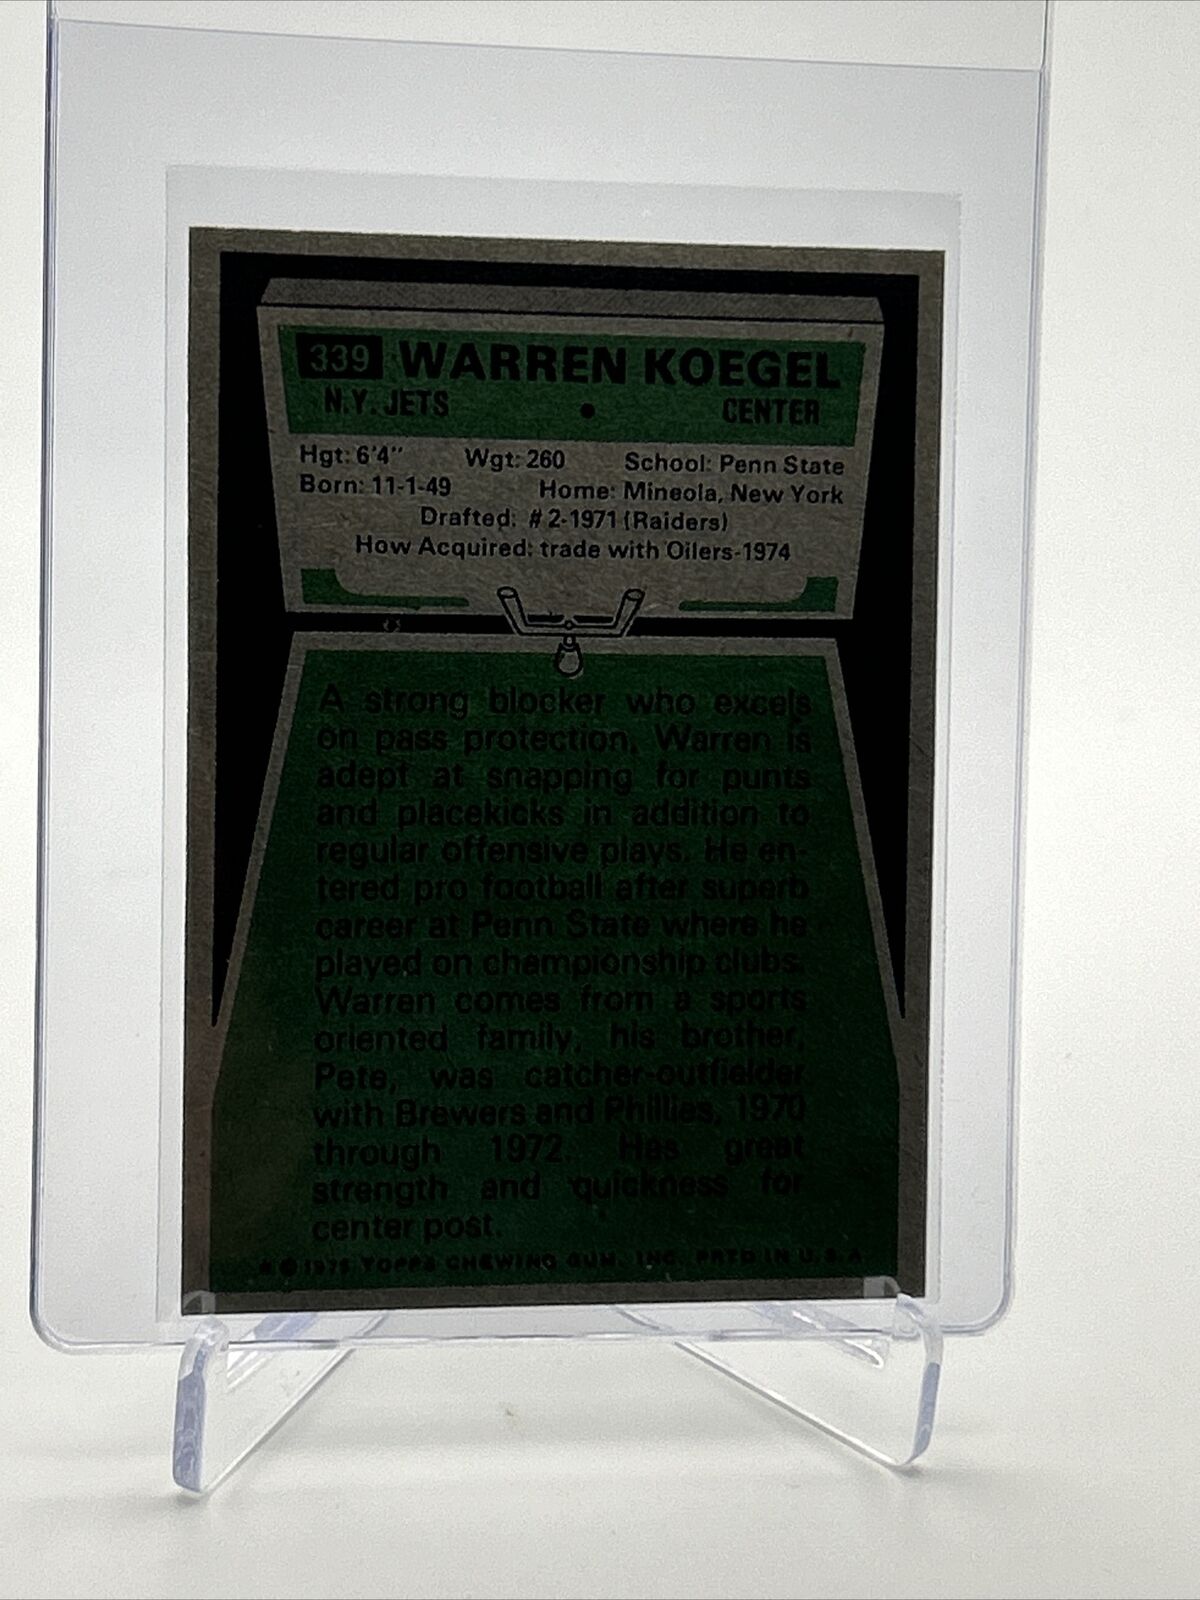 339 WARREN KOEGEL
N.Y. JETS • CENTER
Hgt: 6'4" Wgt: 260 School: Penn State
Born: 11-1-49 Home: Mineola, New York
Drafted: #2-1971 (Raiders)
How Acquired: trade with Oilers-1974
A strong blocker who excels
on pass protection, Warren is
adept at snapping for punts
and placekicks in addition to
regular offensive plays. He en-
tered pro football after superb
career at Penn State where he
played on championship clubs.
Warren comes from a sports
oriented family, his brother,
Pete, was catcher-outfielder
with Brewers and Phillies, 1970
through 1972. Has great
strength and quickness for
center post.
© 1975 TOPPS CHEWING GUM, INC. PRTD IN U.S.A